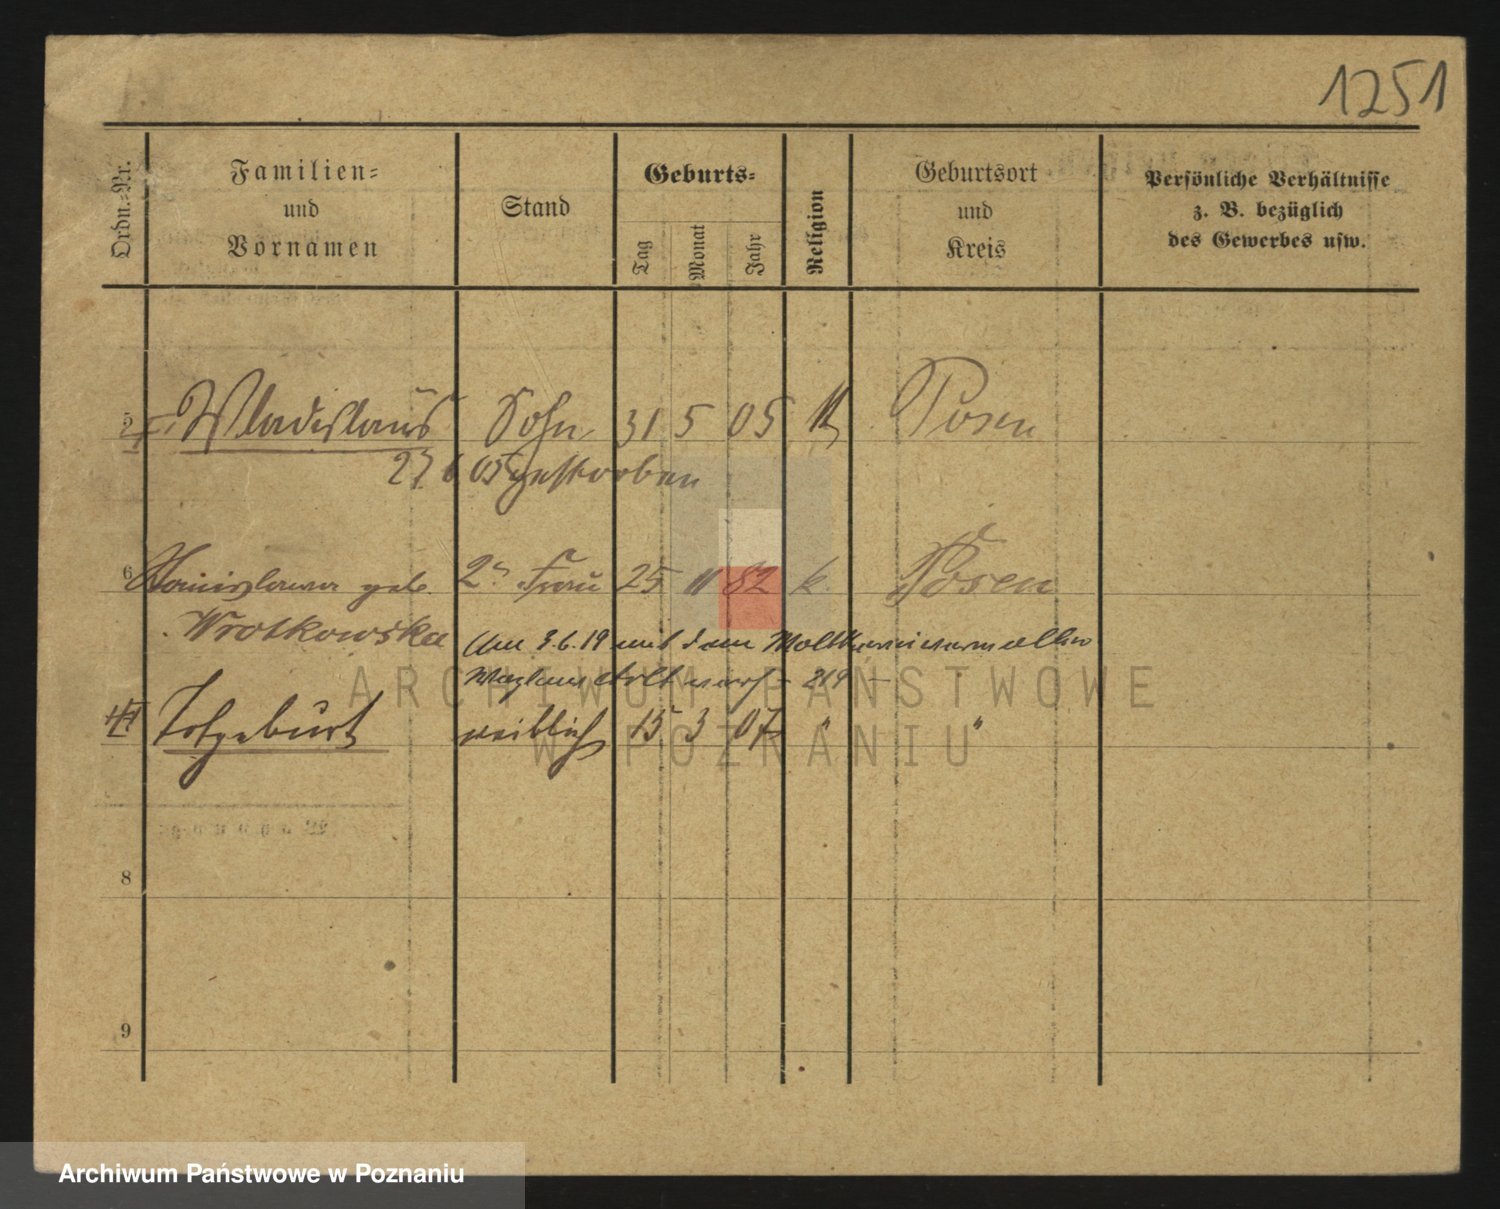 1251
Ordn.-Nr.
Familien-
und
Vornamen
Stand
Geburts-
Tag
Monat
Jahr
Religion
Geburtsort
und
Kreis
Persönliche Verhältnisse
z. B. bezüglich
des Gewerbes usw.
5 Wladislaus Sohn 31 5 05 K Posen
27 6 05 gestorben
6 Stanislawa geb. 2te Frau 25 11 82 k. Posen
Wrotkowska
Am 3.6.19 mit dem
219 –
Totgeburt weiblich 15 3 07 " "
8
9
ARCHIWUM PAŃSTWOWE
W POZNANIU
Archiwum Państwowe w Poznaniu